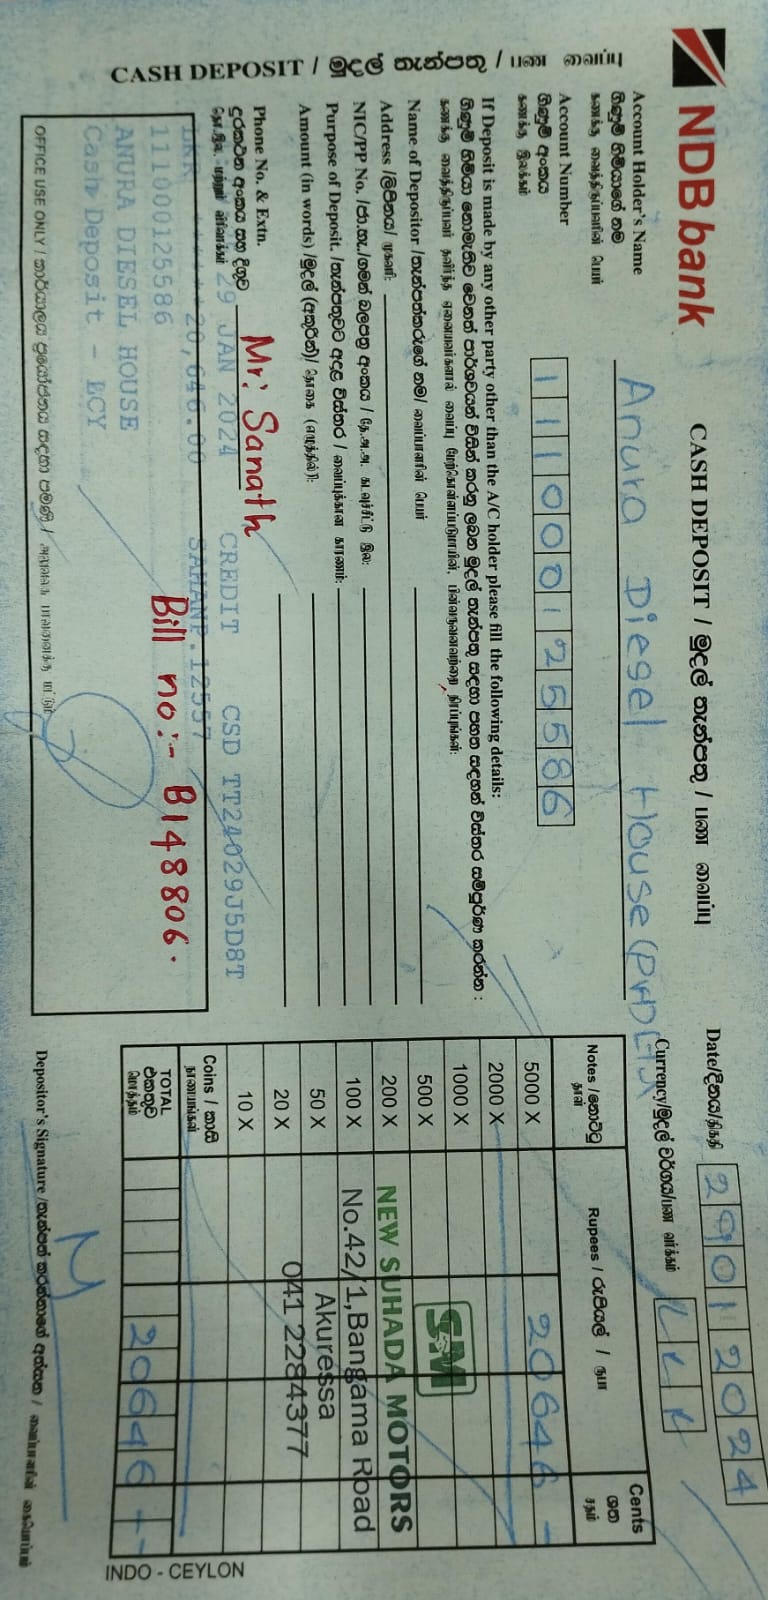 NDB bank
CASH DEPOSIT / මුදල් තැන්පතු / பண வைப்பு
CASH DEPOSIT / මුදල් තැන්පතු / பண வைப்பு
Date/දිනය/திகதி 29012024
Currency/මුදල් වර්ගය/பண வர்க்கம் LKR
Account Holder's Name Anura Diesel House
ගිණුම් හිමියාගේ නම
கணக்கு வைத்திருப்பவரின் பெயர்
Account Number 111000125586
ගිණුම් අංකය
கணக்கு இலக்கம்
If Deposit is made by any other party other than the A/C holder please fill the following details:
ගිණුම් හිමියා නොමැතිව වෙනත් පාර්ශවයක් විසින් කරනු ලබන මුදල් තැන්පතු සඳහා පහත සඳහන් විස්තර සම්පූර්ණ කරන්න :
கணக்கு வைத்திருப்பவர் தவிர்ந்த ஏனையவர்களால் வைப்பு மேற்கொள்ளப்படுமாயின், பின்வருவனவற்றை நிரப்புங்கள்:
Name of Depositor /තැන්පත්කරුගේ නම/ வைப்பாளரின் பெயர்
Address /ලිපිනය/ முகவரி:
NIC/PP No. /ජා.හැ./ගමන් බලපත්‍ර අංකය / தே.அ.அ. கடவுச்சீட்டு இல:
Purpose of Deposit. /තැන්පතුවට අදාළ විස්තර / வைப்புக்கான காரணம்:
Amount (in words) /මුදල් (අකුරින්)/ தொகை (எழுத்தில்):
Phone No. & Extn.
දුරකථන අංකය සහ දිගුව
Mr: Sanath
29 JAN 2024 CREDIT CSD TT24029J5D8T
20,646.00 SAHANP.12557
111000125586
Bill no:- B148806.
ANURA DIESEL HOUSE
Cash Deposit - ECY
OFFICE USE ONLY / කාර්යාලය ප්‍රයෝජනය සඳහා පමණි /
Notes / නෝට්ටු Rupees / රුපියල් / ரூபா Cents ශත சதம்
5000 X 20646 -
2000 X
1000 X
500 X
200 X
100 X
50 X
20 X
10 X
Coins / කාසි நாணயங்கள்
TOTAL එකතුව மொத்தம் 20646 --
SM
NEW SUHADA MOTORS
No.42/1,Bangama Road
Akuressa
041 2284377
Depositor's Signature /තැන්පත් කරන්නාගේ අත්සන / வைப்பாளரின் கையொப்பம்
INDO - CEYLON